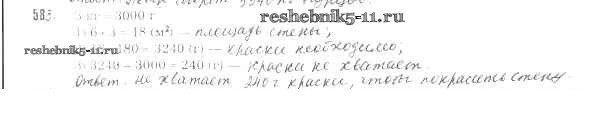 583. 3 кг = 3000 г
reshebnik5-11.ru
1) 6 · 3 = 18 (м²) – площадь стены;
reshebnik5-11.ru 180 = 3240 (г) – краски необходимо;
3) 3240 – 3000 = 240 (г) – краски не хватает.
Ответ. Не хватает 240 г краски, чтобы покрасить стену.